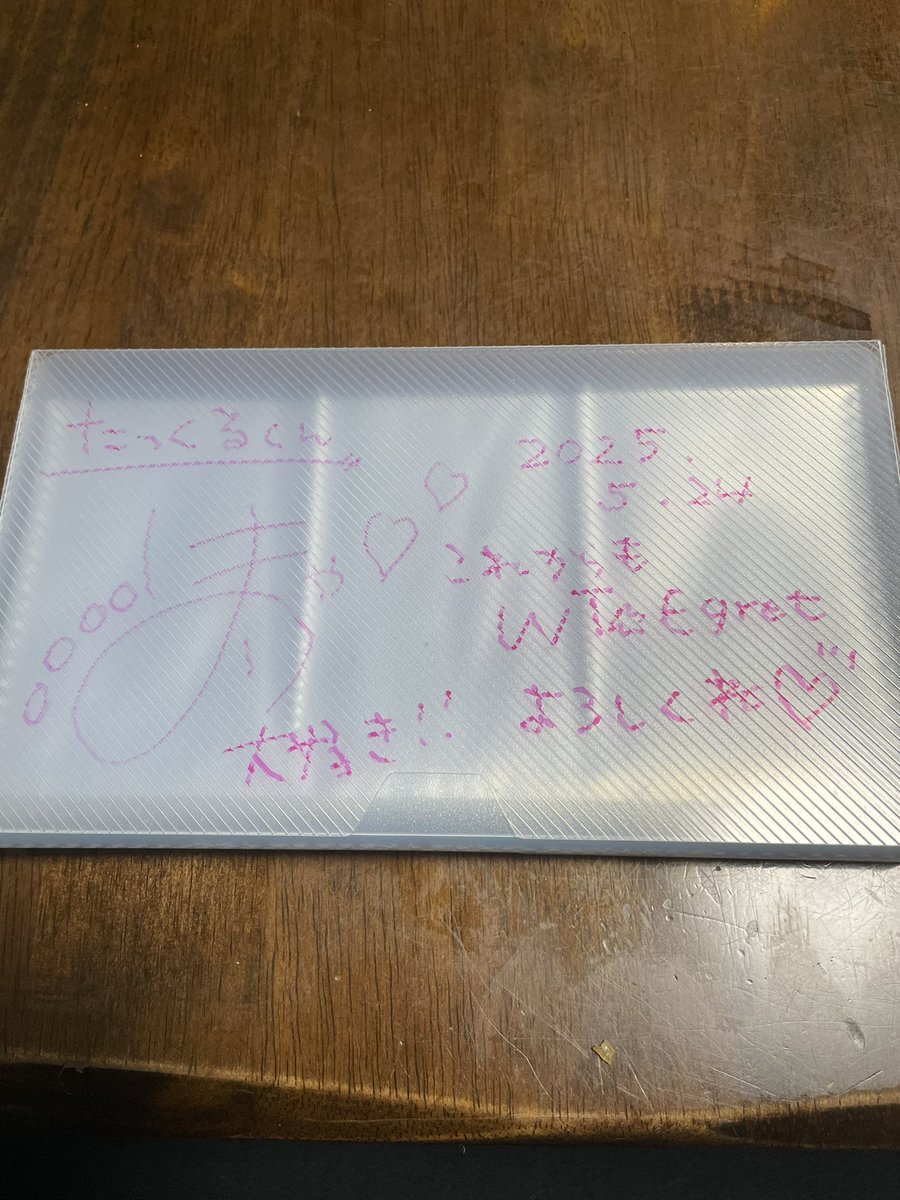 たっくるくん
2025.
5.24
これからも
大好き!!
よろしくね♡!!